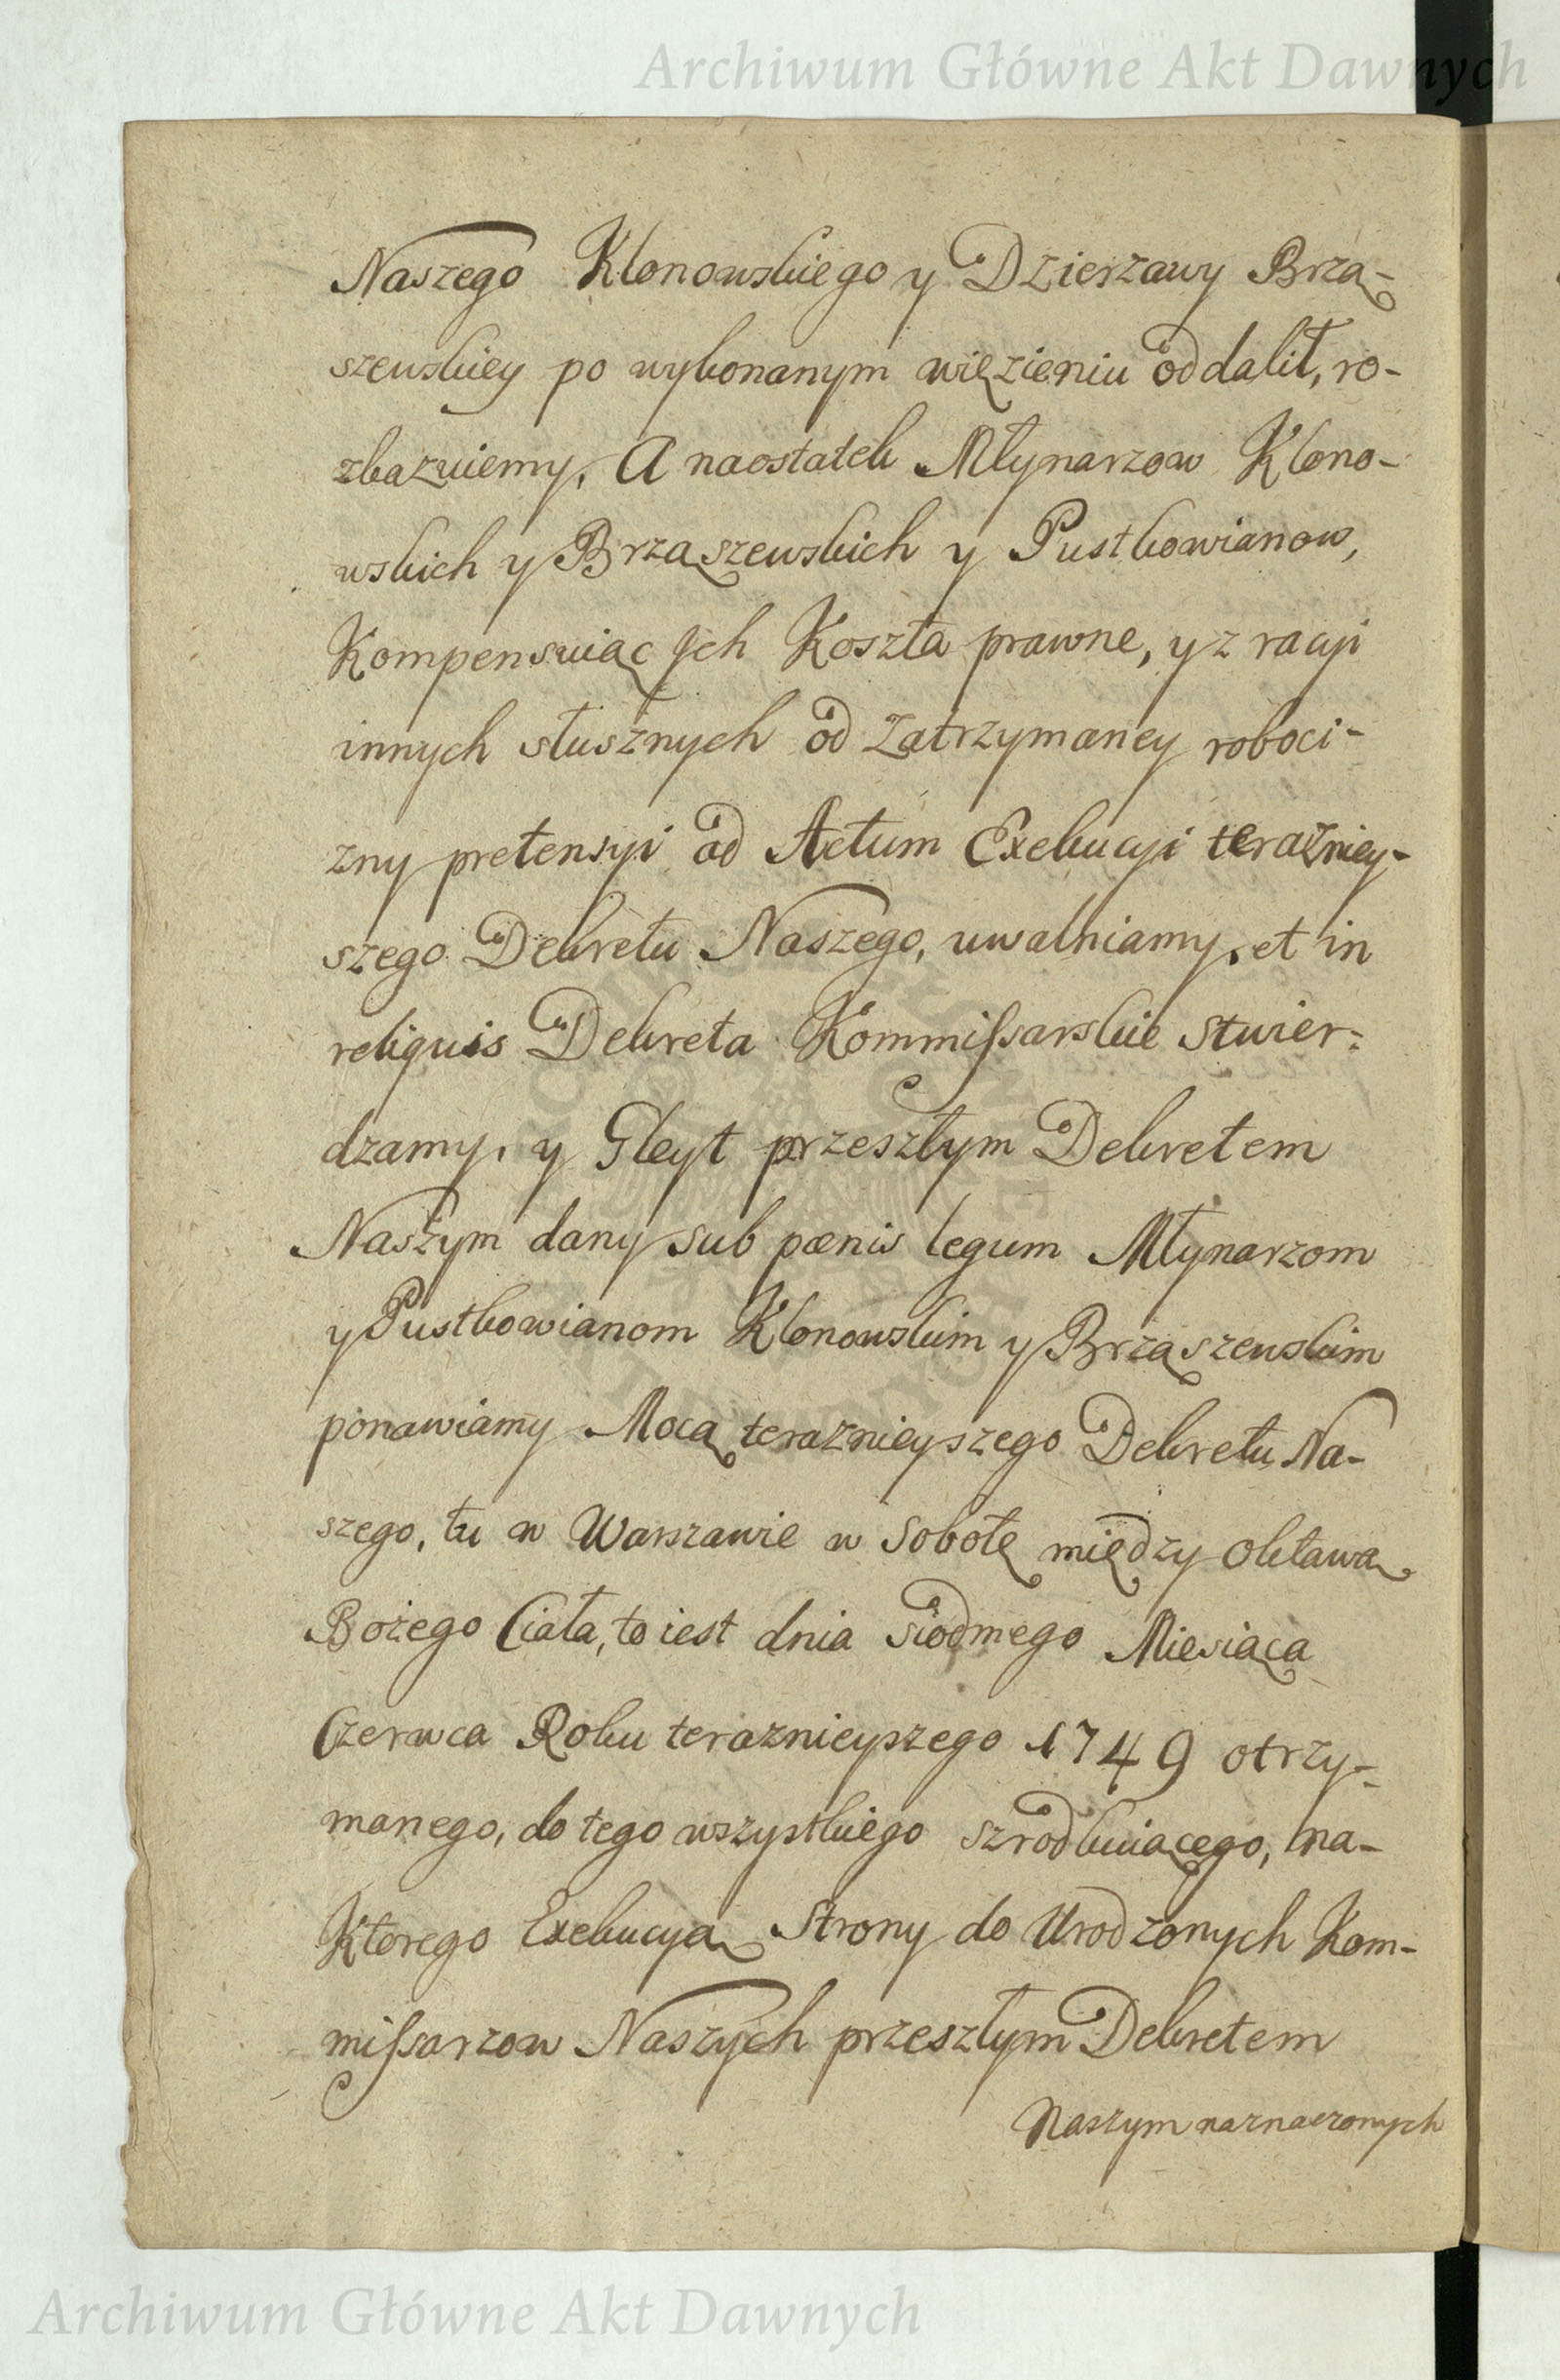 Archiwum Główne Akt Dawnych
Naszego Klonowskiego y Dzierzawy Brzą-
szewskiey po wykonanym więzieniu oddalił, ro-
zkazuiemy, A naostatek Młynarzow Klono-
wskich y Brząszewskich y Pustkowianow,
Kompensuiąc Ich Koszta prawne, y z racyi
innych słusznych od zatrzymaney roboci-
zny pretensyi ad Actum Exekucyi teraźniey-
szego Dekretu Naszego, uwalniamy, et in
reliquis Dekreta Kommiſsarskie stwier-
dzamy, y Gleyt przeszłym Dekretem
Naszym dany sub pœnis legum Młynarzom
y Pustkowianom Klonowskim y Brząszewskim
ponawiamy Mocą teraznieyszego Dekretu Na-
szego, tu w Warszawie w Sobotę między Oktawą
Bożego Ciała, to iest dnia siodmego Miesiąca
Czerwca Roku teraznieyszego 1749 otrzy-
manego, do tego wszystkiego szrodkuiącego, na-
Ktorego Exekucyą Strony do Urodzonych Kom-
miſsarzow Naszych przeszłym Dekretem
Naszym naznaczonych
Archiwum Główne Akt Dawnych